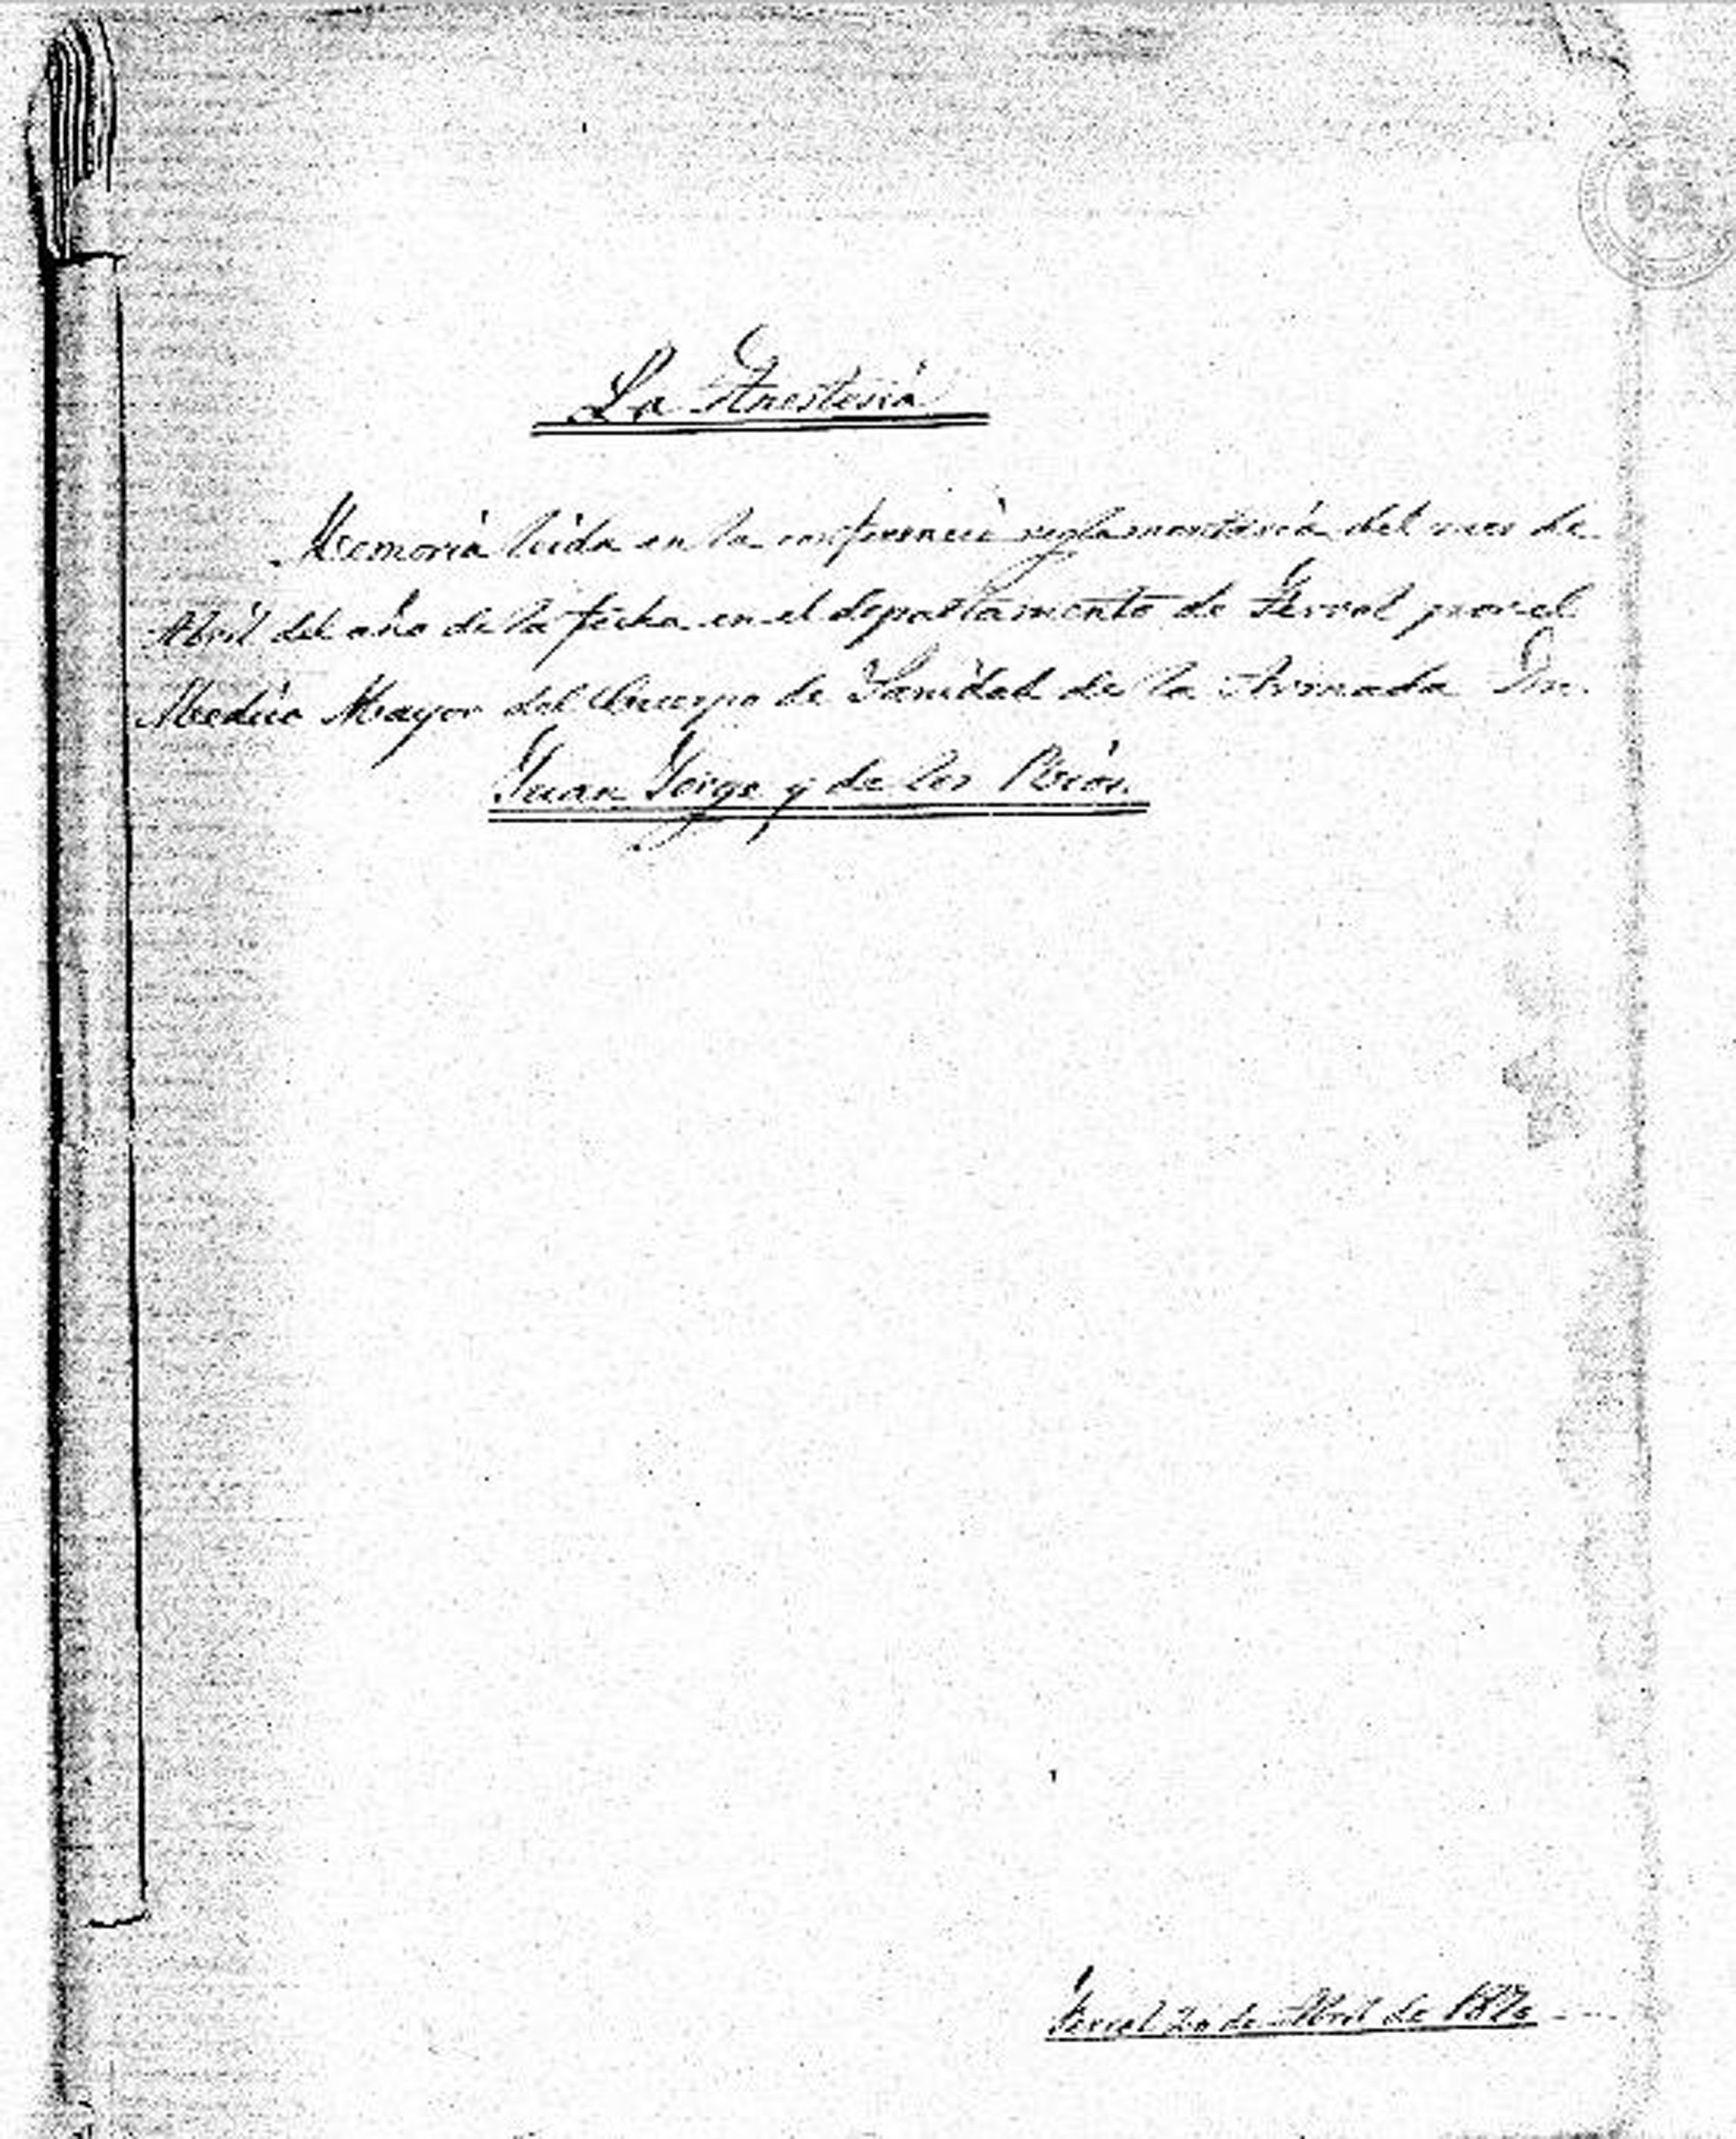 La Anestesia
Memoria leida en la conferencia reglamentaria del mes de
Abril del año de la fecha en el departamento de Ferrol por el
Medico Mayor del Cuerpo de Sanidad de la Armada Dn.
Juan Jorge y de los Rios.
Ferrol 20 de Abril de